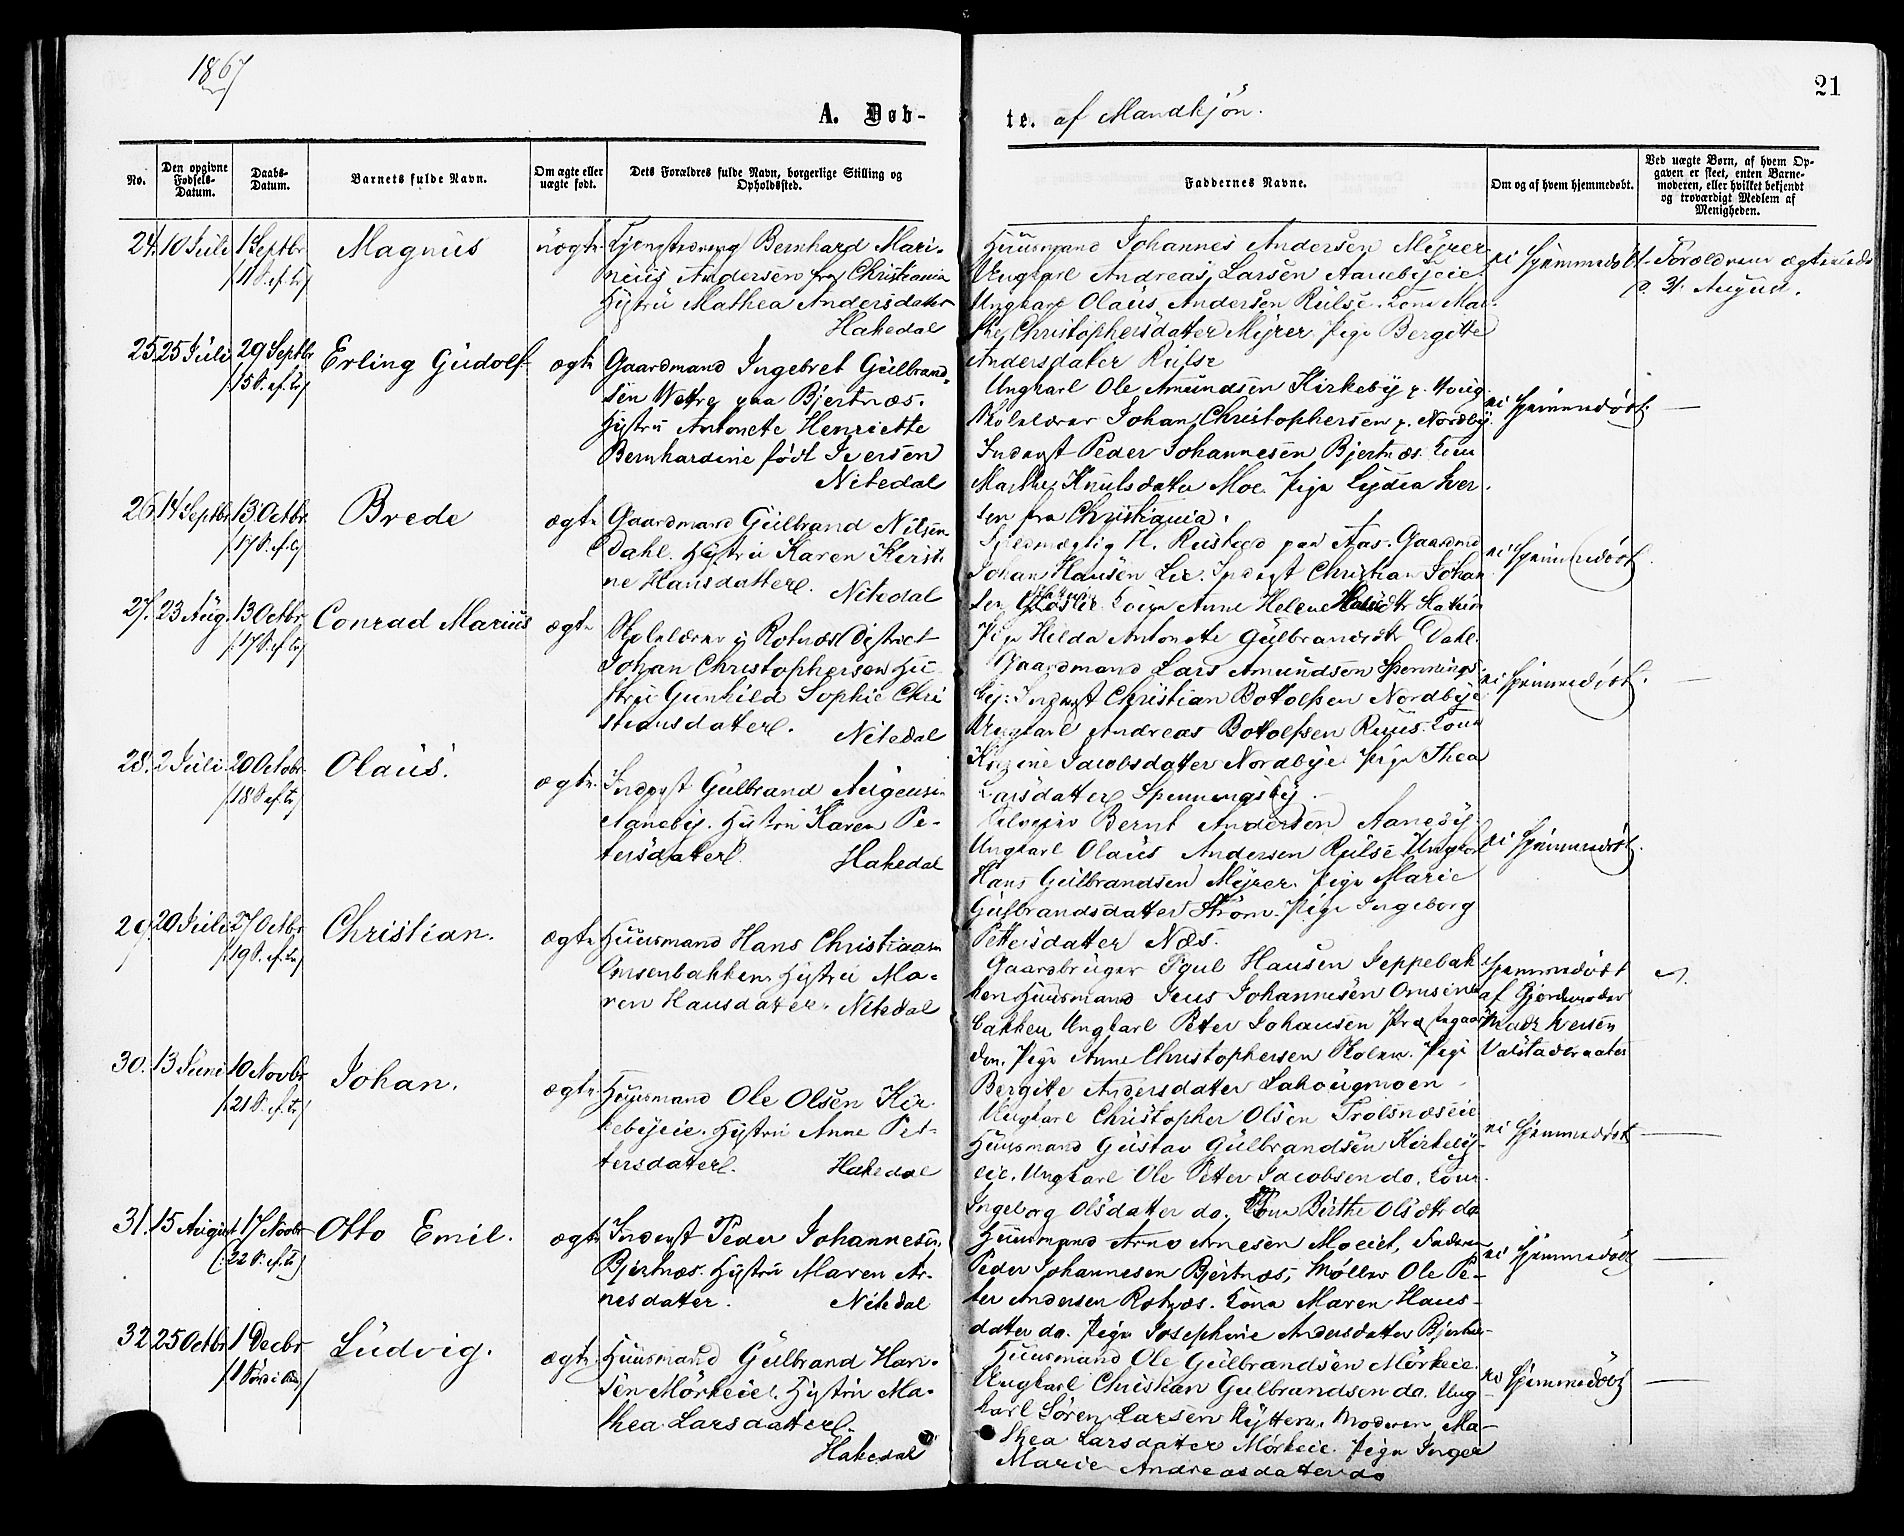 1867
21
A. Døb-
te. af Mandkjøn.
No.
Den opgivne Fødsels-Datum.
Daabs-Datum.
Barnets fulde Navn.
Om ægte eller uægte født.
Dets Forældres fulde Navn, borgerlige Stilling og Opholdssted.
Faddernes Navne.
Om og af hvem hjemmedøbt.
Ved uægte Børn, af hvem Op-
gaven er skeet, enten Barne-
moderen, eller hvilket bekjendt
og troværdigt Medlem af
Menigheden.
24. 10 Juli 1 Septbr Magnus uægte
Bernhard Mari-
nius Andersen fra Christiania
Hustru Mathea Andersdatter
Hakedal
Huusmand Johannes Andersen Myrer
Ungkarl Andreas Larsen Aanebyeie
Ungkarl Olaus Andersen Rulse. Kone Mar-
the Christophersdatter Myrer. Pige Bergitte
Andersdatter Rulse
ei Hjemmedøbt
Forældrene
31 August.
25. 25 Juli 29 Septbr Erling Gudolf ægte
/15 S. ef. Tr/
Gaardmand Ingebret Gulbrand-
sen Wetre paa Bjertnæs.
Hustru Antonete Henriette
Bernhardine født Iversen
Nitedal
Ungkarl Ole Amundsen Kirkeby
Skolelærer Johan Christophersen p. Nordby
Inderst Peder Johannesen Bjertnæs. Kone
Marthe Knutsdatter Moe. Pige Lydia Iver-
sen fra Christiania.
ei Hjemmedøbt. —
26. 14 Septbr 13 Octbr Brede ægte
/17 S. ef. Tr/
Gaardmand Gulbrand Nilsen
Dahl. Hustru Karen Kirsti-
ne Hansdatter.
Nitedal
H. Rustad paa Aas. Gaardmd
Johan Hansen Lie. Inderst Christian Johan-
sen
Anne Helene
Pige Hilda Antonette Gulbrandsdtr Dahl.
ei Hjemmedøbt
27. 23 Aug. 13 Octbr Conrad Marius ægte
/17 S. ef. Tr/
Skolelærer i Rotnæs District
Johan Christophersen Hu-
stru Gunhild Sophie Chri-
stiansdatter.
Nitedal
Gaardmand Lars Amundsen Spennings-
by. Inderst Christian Botolfsen Nordbye
Ungkarl Andreas Botolfsen Ruus. Kone
Jacobsdatter Nordbye Pige Thea
Larsdatter Spenningsby.
ei Hjemmedøbt. —
28. 2 Juli 20 Octobr Olaus. ægte
/18 S. ef. Tr/
Inderst Gulbrand
Aaneby. Hustru Karen Pe-
tersdatter.
Hakedal
Bernt Andersen Aaneby
Ungkarl Olaus Andersen Rulse Ungkarl
Hans Gulbrandsen Myrer. Pige Marie
Gulbrandsdatter Strøm. Pige Ingeborg
Pettersdatter Næs.
ei Hjemmedøbt.
29. 20 Juli 27 Octbr Christian. ægte
/19 S. ef. Tr/
Huusmand Hans Christiansen
Ornsenbakken Hustru Ma-
ren Hansdatter. Nitedal
Gaardbruger Poul Hansen Jeppebak-
ken Huusmand Jens Johannesen
bakken Ungkarl Peter Johansen
den. Pige Anne Christophersen Skolen. Pige
Bergitte Andersdatter Lahougmoen
Hjemmedøbt
af Gjordemoder
Iversen
30. 13 Juni 10 Novbr Johan. ægte
/21 S. ef. Tr/
Huusmand Ole Olsen Kir-
kebyeie. Hustru Anne Pet-
tersdatter.
Hakedal
Ungkarl Christopher Olsen Trolsnæseie
Huusmand Gustav Gulbrandsen Kirkeby-
eie. Ungkarl Ole Petter Jacobsen do. Kone
Ingeborg Olsdatter do. Kone Birthe Olsdtr do
ei Hjemmedøbt —
31. 15 August 17 Novbr Otto Emil. ægte
/22 S. ef. Tr/
Inderst Peder Johannesen
Bjertnæs. Hustru Maren Ar-
nesdatter.
Nitedal
Huusmand Arne Arnesen Moeiet, Faderen
Peder Johannesen Bjertnæs, Møller Ole Pe-
ter Andersen Rotnæs. Kone Maren Hans-
datter do. Pige Josephine Andersdatter
ei Hjemmedøbt —
32 25 Octbr 1 Decbr Ludvig. ægte
Huusmand Gulbrand Han-
sen Mörkeie. Hustru Ma-
thea Larsdatter.
Hakedal
Huusmand Ole Gulbrandsen Mörkeie.
Ungkarl Christian Gulbrandsen do. Ung-
karl Søren Larsen Moderen Ma-
thea Larsdatter Mörkeie. Pige Inger
Marie Andreasdatter do
ei Hjemmedøbt —